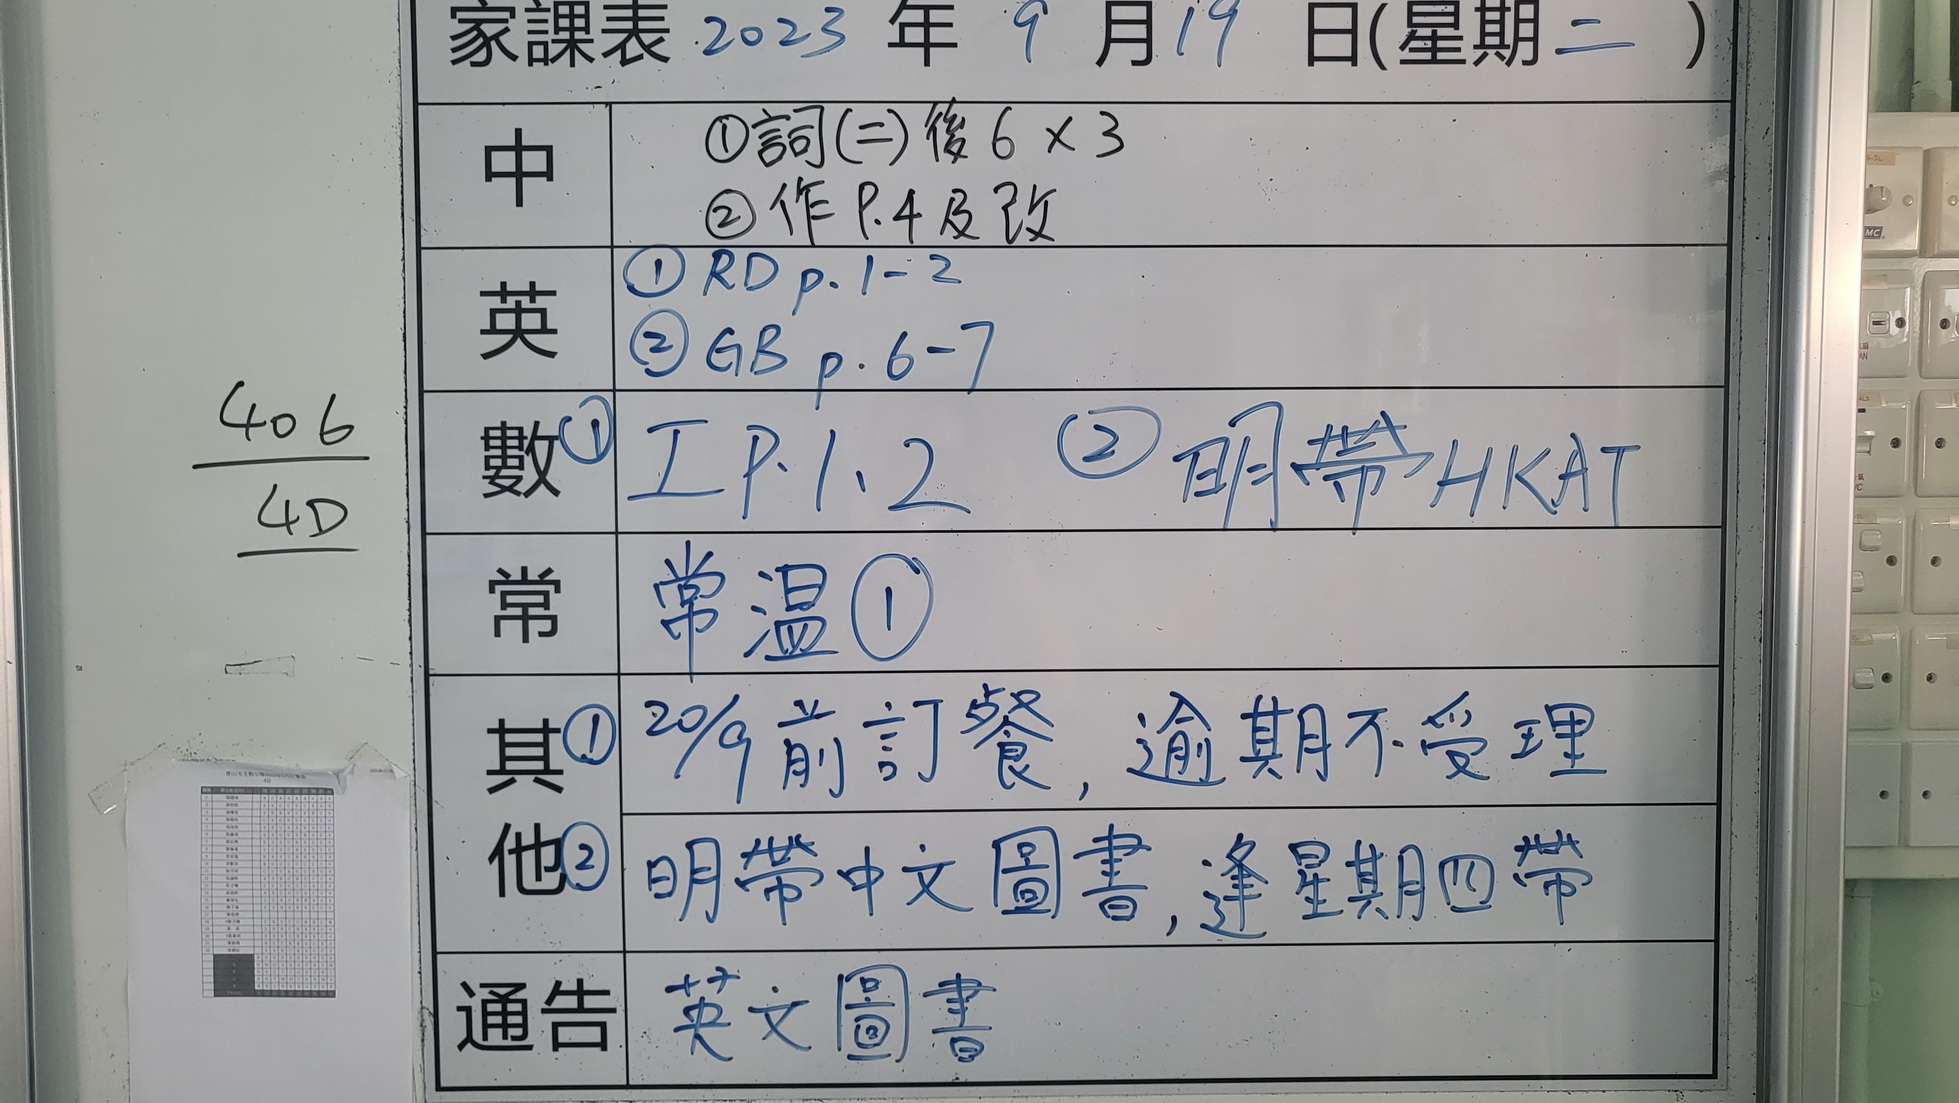 家課表 2023 年 9 月 19 日(星期二)
中
①詞(二)後6×3
②作P.4及改
英
①RD p.1-2
②GB p.6-7
數 ①工P.1、2 ②明帶HKAT
406
4D
常 常温①
其他
①20/9前訂餐,逾期不受理
②明帶中文圖書,逢星期四帶
通告 英文圖書
MC